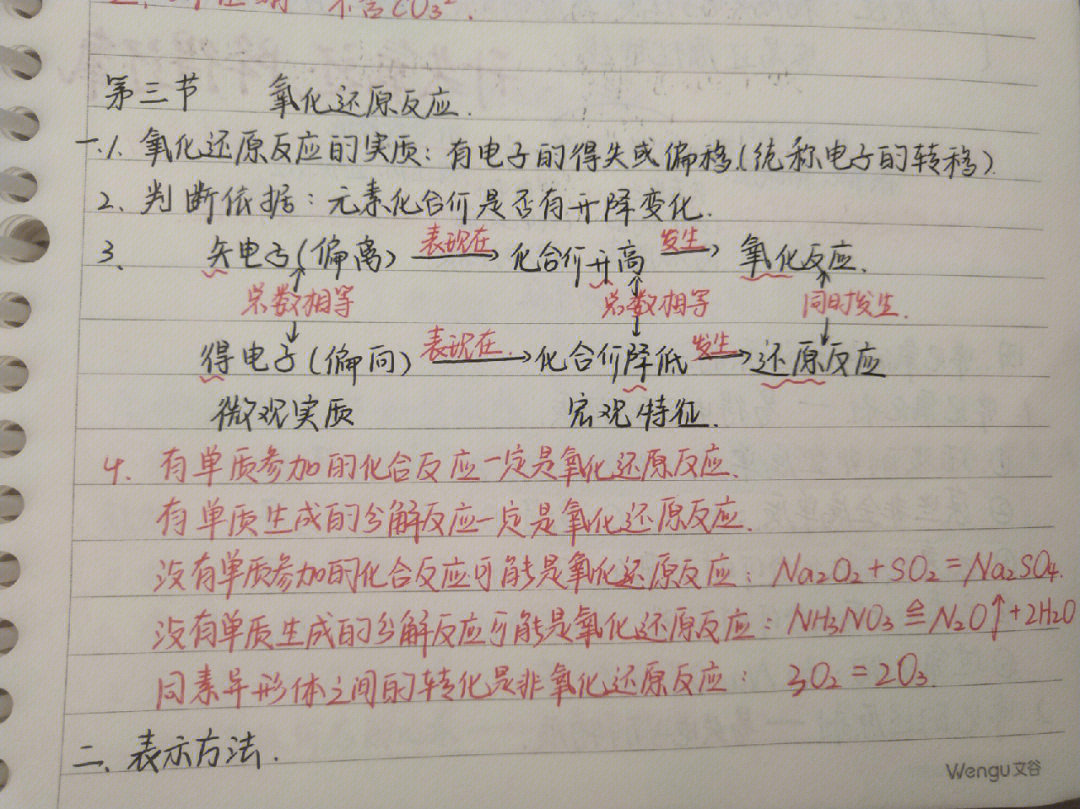 不含CO₃²⁻.
第三节 氧化还原反应.
一.1. 氧化还原反应的实质：有电子的得失或偏移.(统称电子的转移)
2、判断依据：元素化合价是否有升降变化.
3、 失电子(偏离) 表现在→ 化合价升高 发生→ 氧化反应.
总数相等 总数相等 同时发生.
得电子(偏向) 表现在→ 化合价降低 发生→ 还原反应
微观实质 宏观特征.
4. 有单质参加的化合反应一定是氧化还原反应.
有单质生成的分解反应一定是氧化还原反应.
没有单质参加的化合反应可能是氧化还原反应：Na₂O₂+SO₂=Na₂SO₄.
没有单质生成的分解反应可能是氧化还原反应：NH₃NO₃≙N₂O↑+2H₂O
同素异形体之间的转化是非氧化还原反应：3O₂=2O₃.
二、表示方法.
Wengu文谷